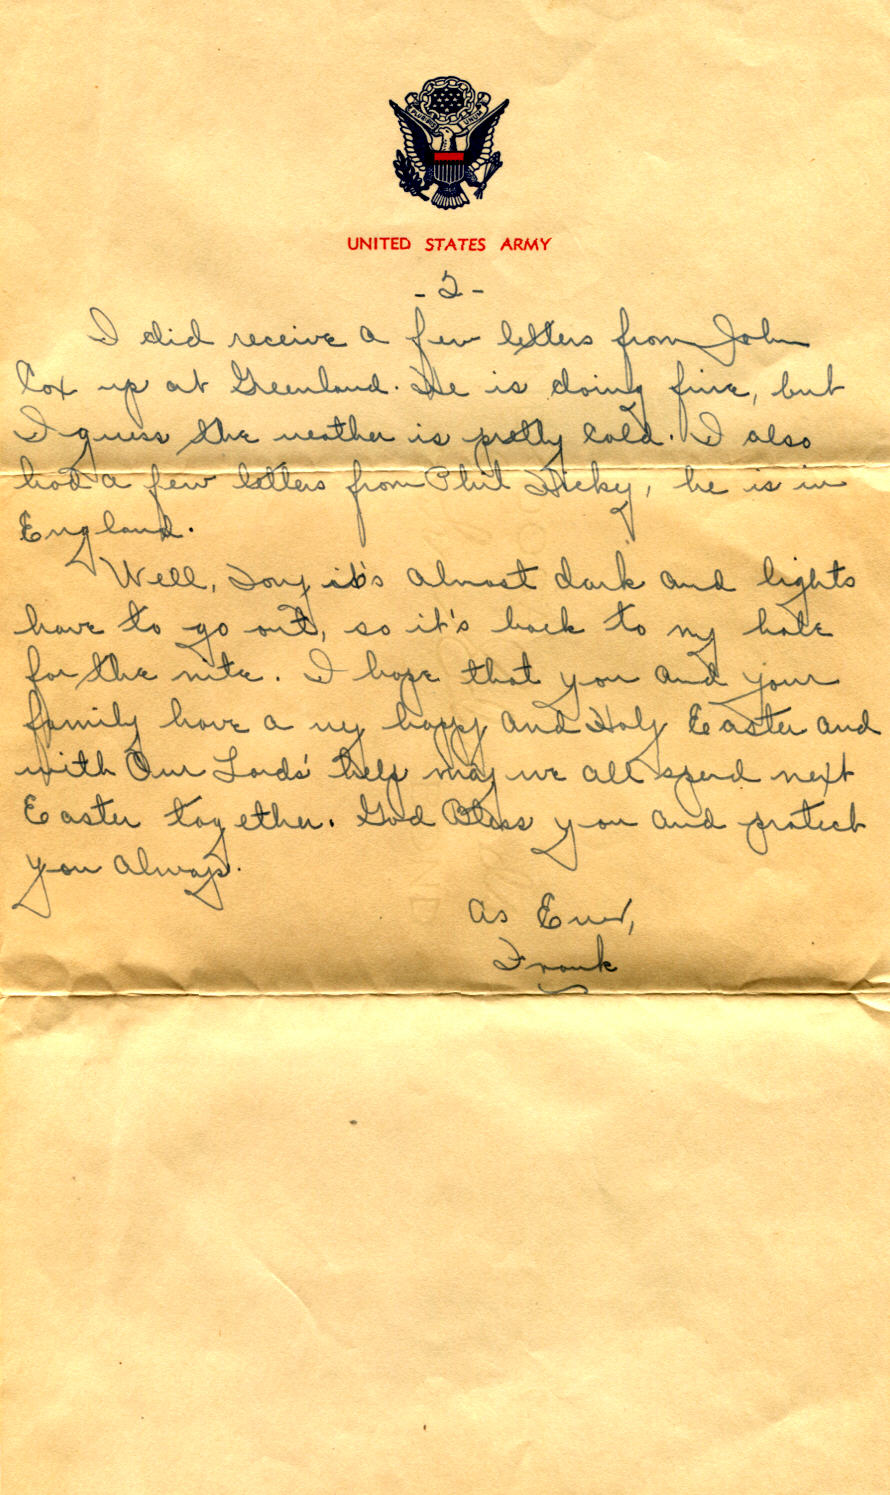 E PLURIBUS UNUM
UNITED STATES ARMY
- 2 -
I did receive a few letters from John
Cox up at Greenland. He is doing fine, but
I guess the weather is pretty cold. I also
had a few letters from Phil Hicky, he is in
England.
Well, Tony it's almost dark and lights
have to go out, so it's back to my hole
for the nite. I hope that you and your
family have a very happy and Holy Easter and
with Our Lords' help may we all spend next
Easter together. God Bless you and protect
you always.
As Ever,
Frank